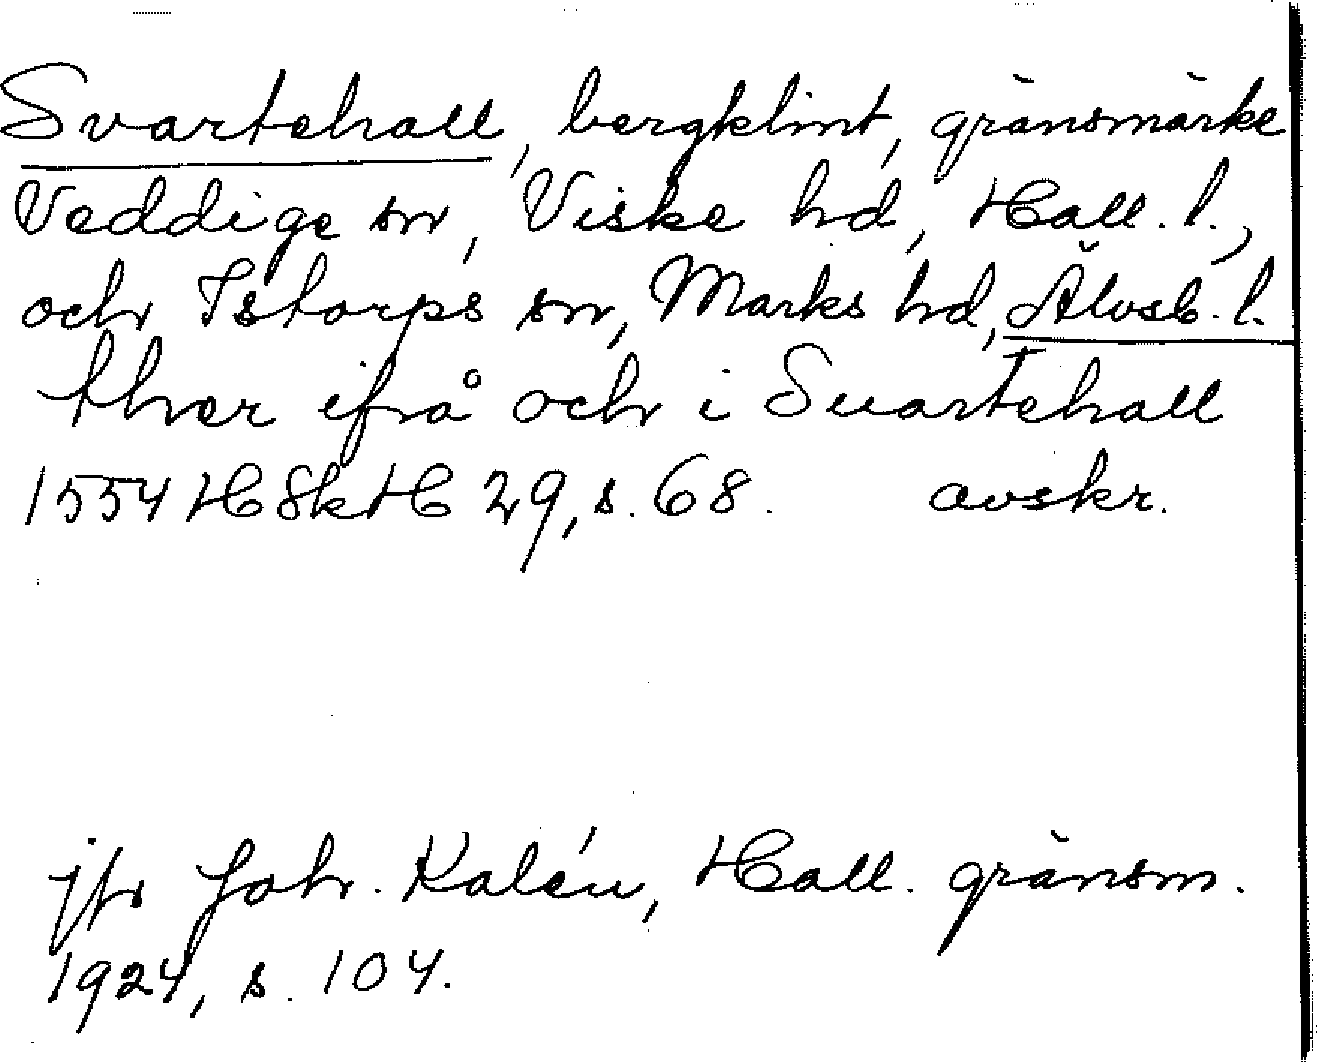 Svartehall, bergklint, gränsmärke
Veddige sn, Viske hd, Hall. l.,
och Istorps sn, Marks hd, Älvsb. l.
ther ifrå och i Suartehall
1554 HSkH 29, s. 68. avskr.
jfr Joh. Kalén, Hall. gränsm.
1924, s. 104.